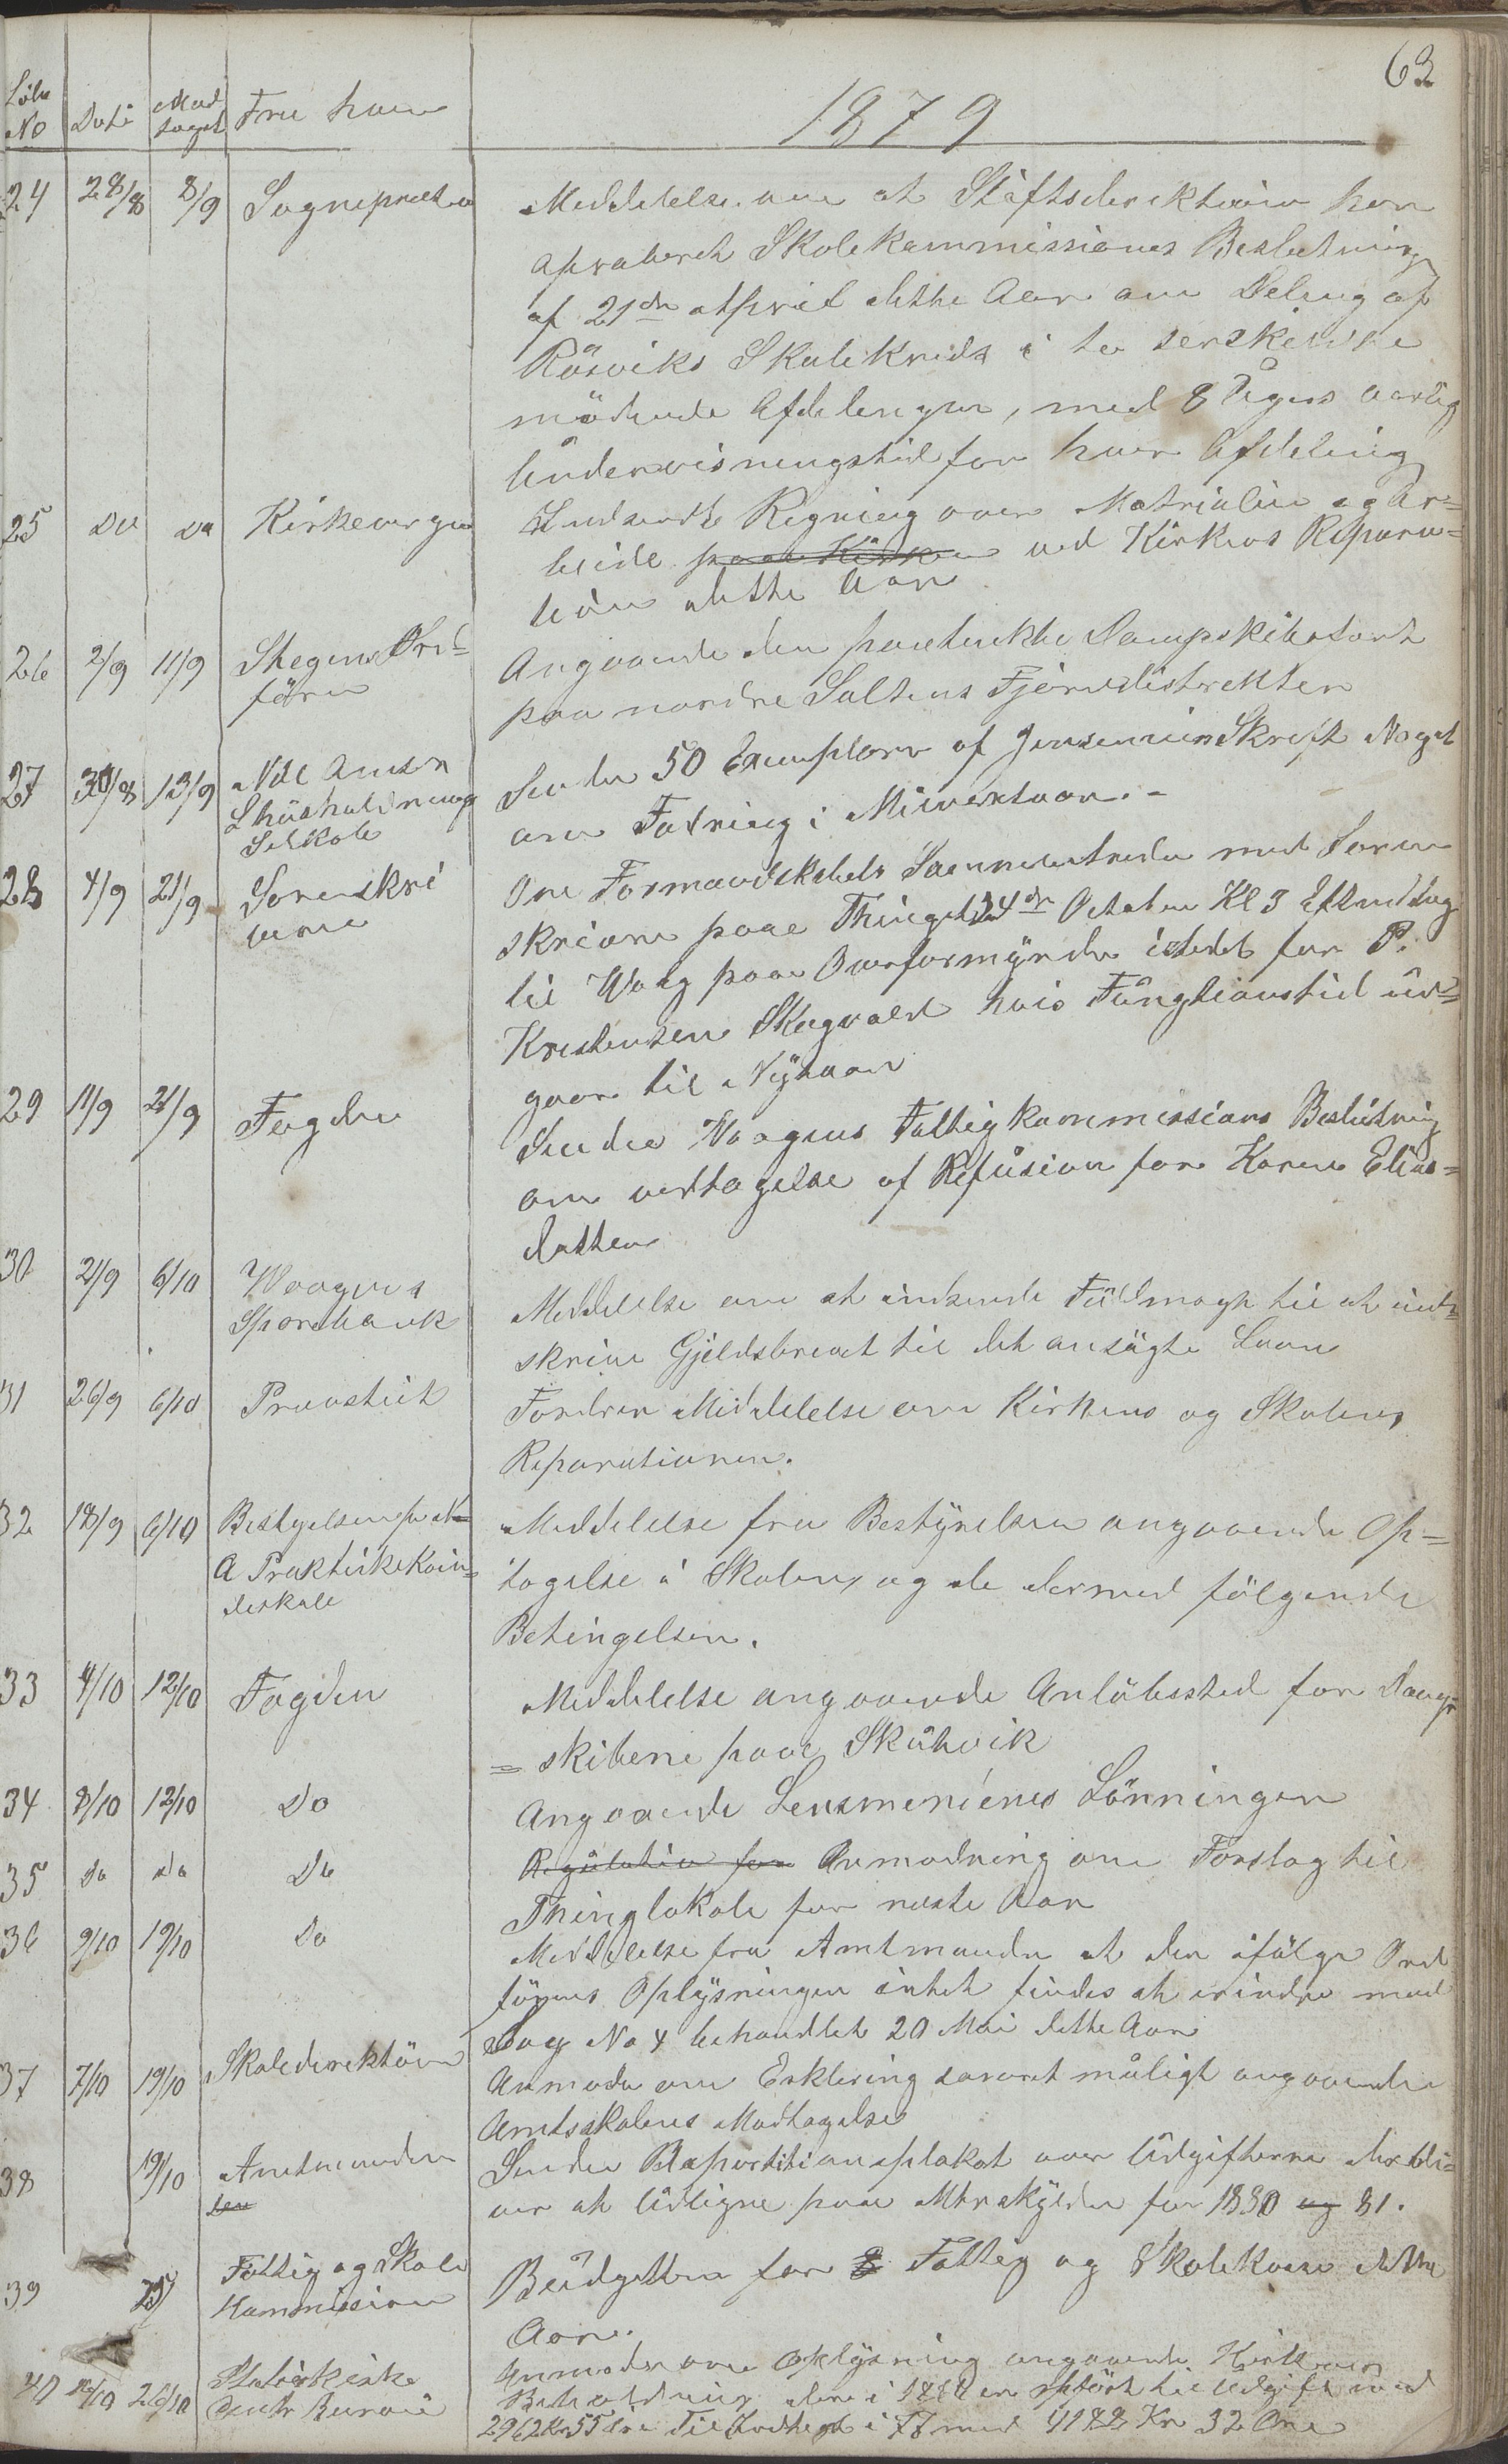 63
Löbe No Dato Mod taget Fra hvem 1879
24 28/8 8/9 Sogneprest Meddelelse om at Stiftsderektionen har
aproberet Skolekommissiones Beslutning
af 21de April dette Aar om Deling af
Rösviks Skolekreds i to serskilte
mödende Afdelinger, med 8 Ugers aarlig
Undervisningstid for hver Afdeling
25 Do Do Kirkevergen Indsendte Regning over Matrialier og Ar=
beide paa Kirken ved Kirkens Repara=
tion dette Aar
26 2/9 11/9 Stegens Ord= Angaaende den paatenkte Dampskibsfart
förer paa nordre Saltens Fjorddistrekter
27 30/8 13/9 Ndl Amts Sender 50 Exemplarer af Jensenius Skrift Noget
Lhusholdnings om Fodring i Misvextaar.-
Selskab
28 4/9 21/9 Sorenskri Om Formandskabets Sammentreden med Soren
veren skriveren paa Thinget 24de October Kl 3 Eftermiddag
til Valg paa Overformynder istedet for P.
Kristensen Skagvold hvis Fungtionstid ud=
gaar til Nytaar
29 11/9 21/9 Fogden Sender Vaagens Fattigkommissions Beslutning
om vedtagelse af Refusion for Karen Elias=
datter
30 21/9 6/10 Vaagens Meddelelse om at indsende Fuldmagt til at und=
Sparebank skrive Gjeldsbrevet til det ansögte Laan
31 26/9 6/10 Provstiet Fordrer Meddelelse om Kirkens og Skolens
Reparationer.
32 18/9 6/10 Bestyrelsen for N Meddelelse fra Bestyrelsen angaaende Op=
A Praktiske Kvin= tagelse i Skolen, og de dermed fölgende
deskole Betingelser.
33 4/10 12/10 Fogden Meddelelse angaaende Anlöbssted for Damp
= skibene paa Skutvik
34 8/10 12/10 Do Angaaende Lensmendenes Lönninger
35 Do Do Do Regulativ for Anmodning om Forslag til
Thinglokale for neste Aar
36 9/10 19/10 Do Meddelelse fra Amtmanden at der ifölge Ord
förers Oplysninger intet findes at erindre mod
Sag No 4 behandlet 20 Mai dette Aar
37 7/10 19/10 Skoledirektören Anmoder om Erklering snarest muligt angaaende
Amtsskolens Modtagelse
38 19/10 Amtmanden Sender Repartitionsplakat over Udgifterne der bli=
ver at Udligne paa Mtrskylden for 1880 og 81.
39 25/ Fattig og Skole Budgetter for Fattig og Skolekasse dette
Kommission Aar.
40 16/10 26/10 Statistiske Anmoder om Oplysning angaaende Kirkens
Centr Bureau Beholdning der i 1878 er opfört til Udgift med
2962 Kr 55 Öre Til Indtegt i 77 med 4182 Kr 32 Öre